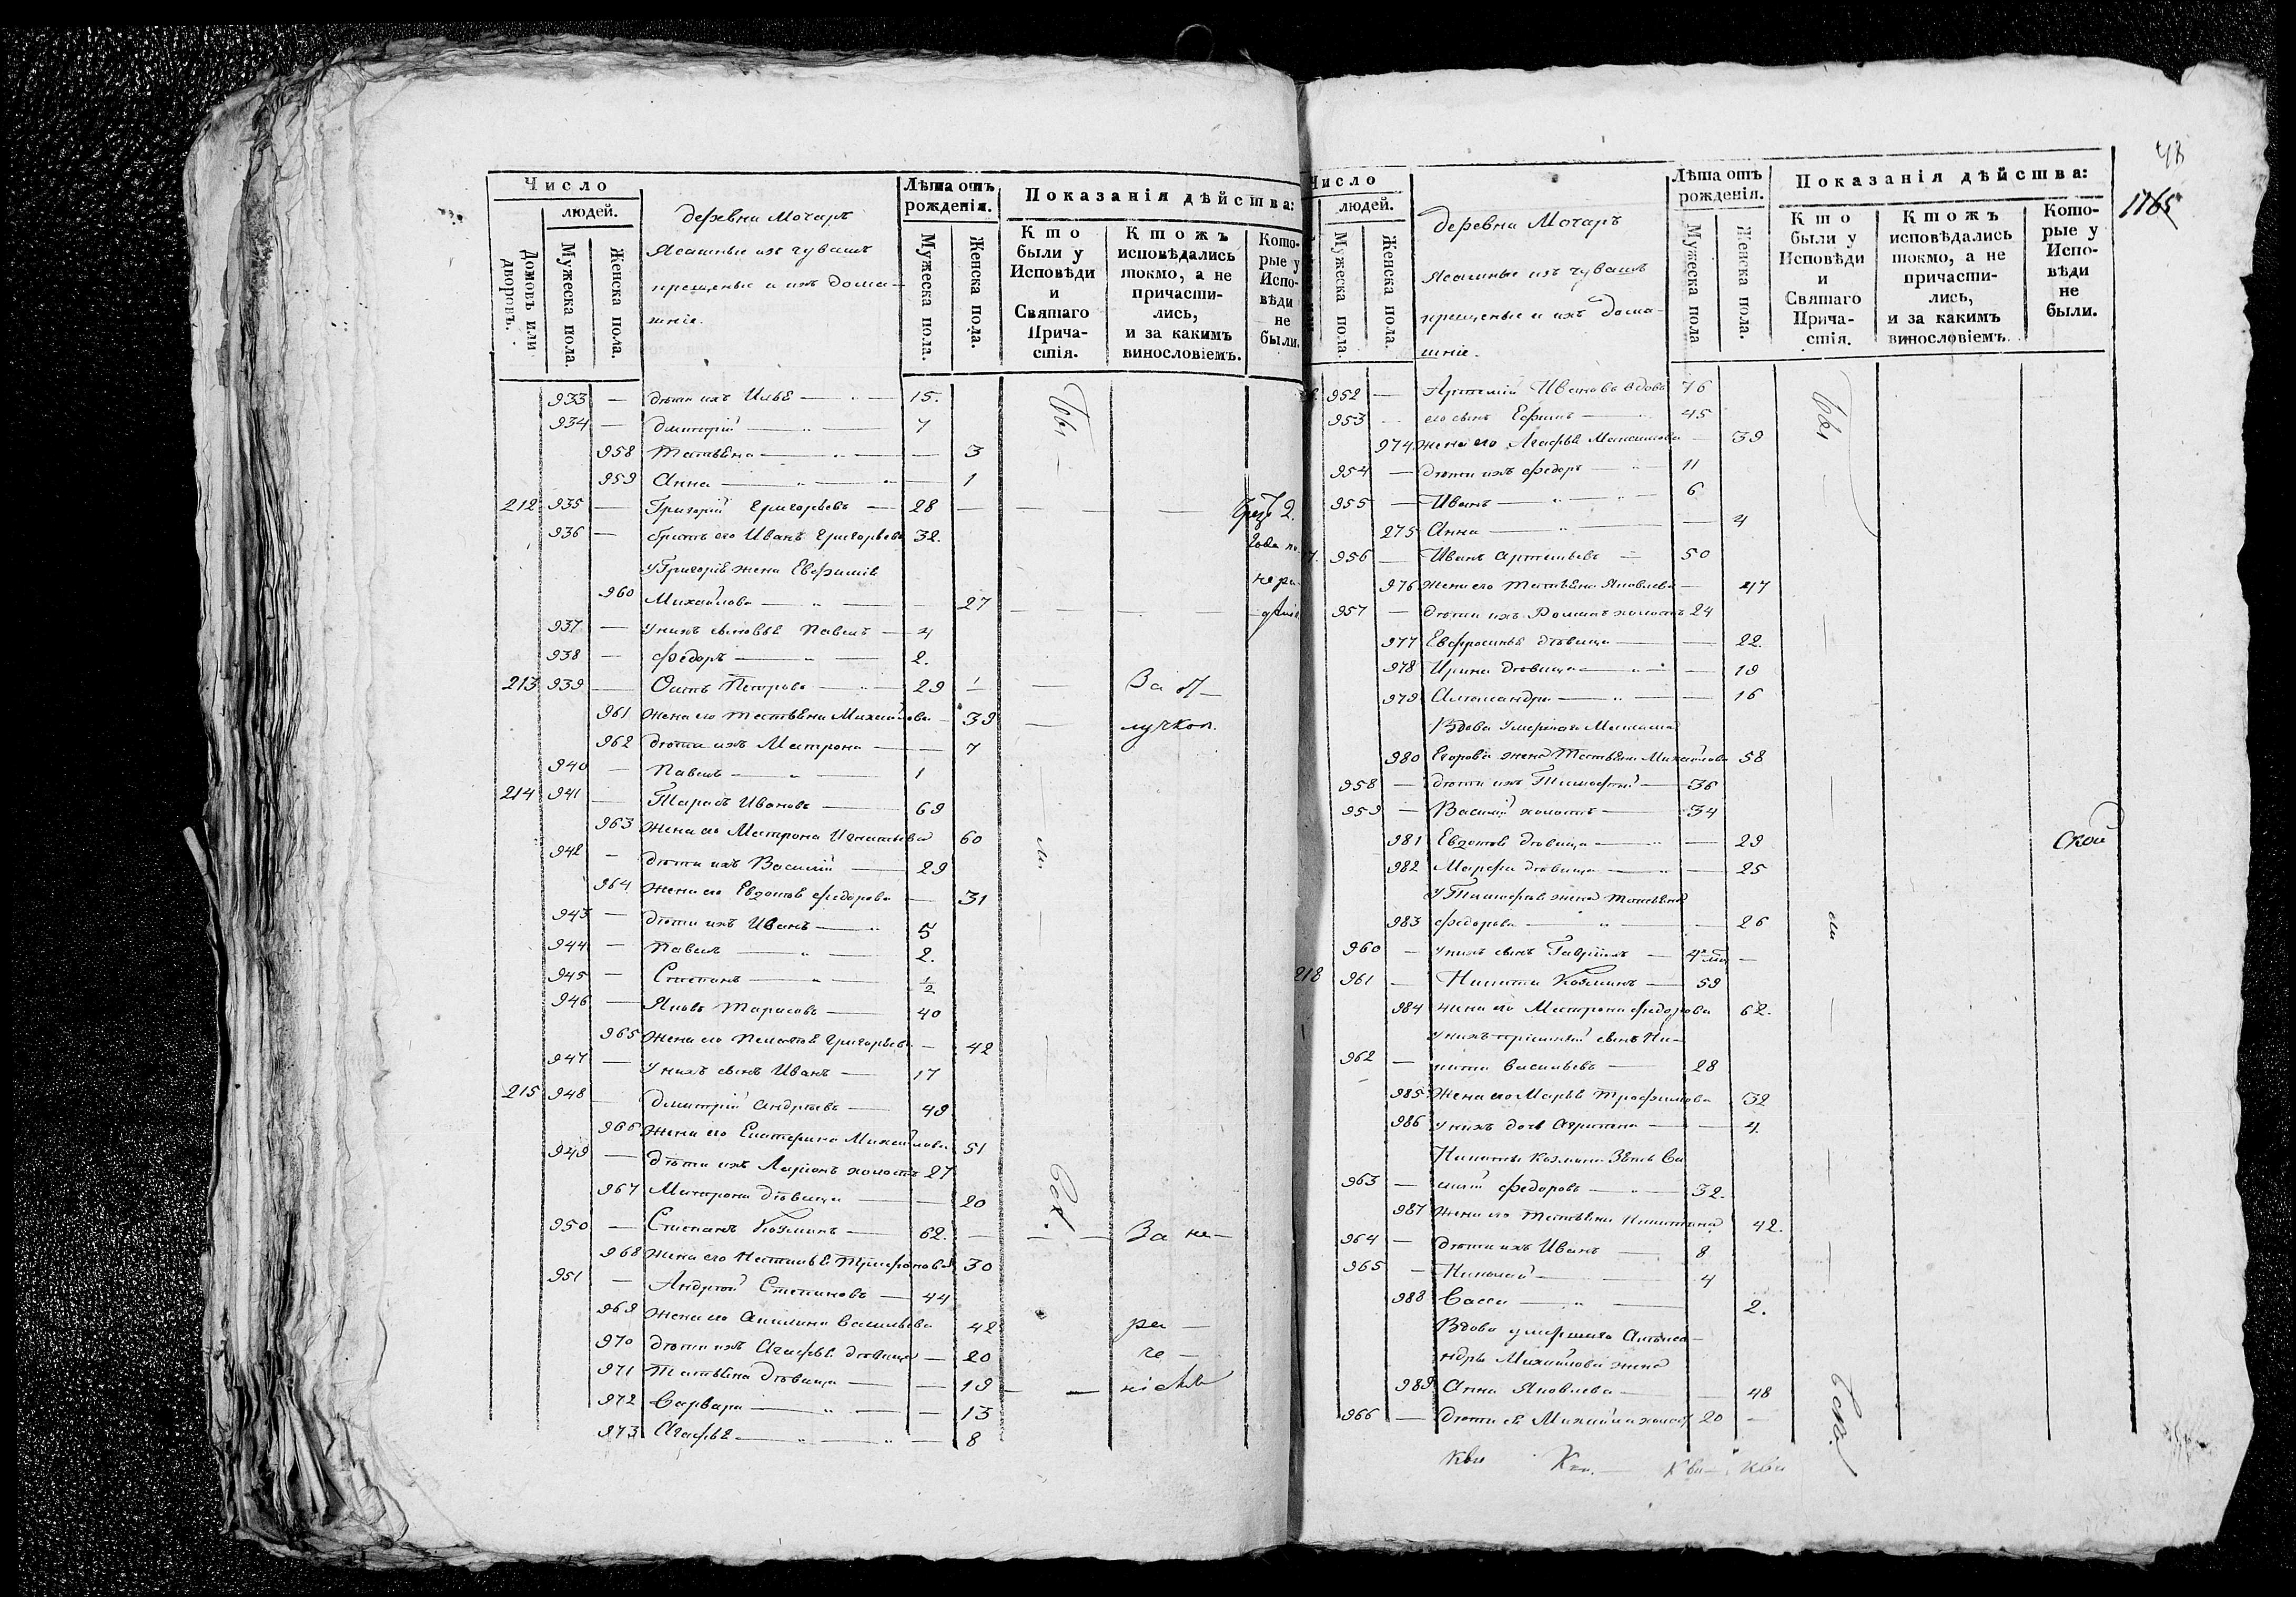 Число
людей.
Домовъ или дворовъ.
Мужеска пола
Женска пола.
деревни Мочаръ
Ясашные изъ чувашъ
крещеные и ихъ дома-
шніе.
Лѣта отъ рожденія.
Мужеска пола.
Женска пола.
Показанія дѣйства:
Кто были у Исповѣди и Святаго Причастія.
Ктожъ исповѣдались токмо, а не причастились, и за какимъ винословіемъ.
Которые у Исповѣди не были.
933 — дѣти ихъ Илья — 15.
934 — Дмитрій — 7
958 Татьяна — — 3
959 Анна — — 1
212 935 — Григорій Григорьевъ — 28 — — — —
936 — братъ его Иванъ Григорьевъ 32.
У Григорія жена Евфимія
960 Михайлова — — 27
937 — У нихъ сыновья Павелъ — 4
938 — Федоръ — 2.
213 939 — Осипъ Петровъ — 29 — — За от-
961 жена его Татьяна Михайлова — 39 — лучкою.
962 дѣти ихъ Матрона — — 7
940 — Павелъ — 1
214 941 — Тарасъ Ивановъ — 69
963 жена его Матрона Игнатьева 60
942 — дѣти ихъ Василій — 29
964 жена его Евдокія Федорова — 31
943 — дѣти ихъ Иванъ — 5
944 — Павелъ — 2.
945 — Степанъ — 1/2
946 — Яковъ Тарасовъ — 40
965 жена его Пелагея Григорьева — 42
947 — У нихъ сынъ Иванъ — 17
215 948 — Дмитрій Андреевъ — 49
966 жена его Екатерина Михайлова 51
949 — дѣти ихъ Ларіонъ холостъ 27
967 Матрона дѣвица — — 20
950 — Степанъ Козминъ — 62. — — — За не-
968 жена его Наталья Трифонова 30
951 — Андрей Степановъ — 44
969 жена его Акилина Васильева 42 ра-
970 дѣти ихъ Агафья дѣвица — 20 че-
971 Татьяна дѣвица — — 19 — — ніемъ
972 Варвара — — 13
973 Агафья — — 8
48
1165
Число
людей.
Мужеска пола.
Женска пола.
деревни Мочаръ
Ясашные изъ чувашъ
крещеные и ихъ дома-
шніе.
Лѣта отъ рожденія.
Мужеска пола
Женска пола.
Показанія дѣйства:
Кто были у Исповѣди и Святаго Причастія.
Ктожъ исповѣдались токмо, а не причастились, и за какимъ винословіемъ.
Которые у Исповѣди не были.
952 — Артемій Ивановъ вдовъ 76
953 — его сынъ Ефимъ — 45
974 жена его Агафья Максимова — 39
954 — дѣти ихъ Федоръ — 11
955 — Иванъ — 6
975 Анна — — 4
956 — Иванъ Артемьевъ — 50
976 жена его Татьяна Яковлева — 47
957 — дѣти ихъ Романъ холостъ 24
977 Евфросинья дѣвица — — 22.
978 Ирина дѣвица — — 19
979 Александра — — 16
Вдова умершаго Максима
980 Егорова жена Татьяна Михайлова 58
958 — дѣти ихъ Тимофей — 36
959 — Василій холостъ — 34
981 Евдокія дѣвица — — 29
982 Марфа дѣвица — — 25
У Тимофея жена Татьяна
983 Федорова — — 26
960 — У нихъ сынъ Гавріилъ —
218 961 — Никита Козминъ — 59
984 жена его Матрона Федорова 62.
У нихъ пріимный сынъ Ни-
962 — кита Васильевъ — 28
985 Жена его Марья Трофимова 32
986 У нихъ дочь Агрипина — — 4.
Никиты Козмина зять Ва
963 — силій Федоровъ — 32.
987 жена его Татьяна Никитина 42.
964 — дѣти ихъ Иванъ — 8
965 — Николай — 4
988 Васса — 2.
Вдова умершаго Алекса-
ндра Михайлова жена
989 Анна Яковлева — — 48
966 — дѣти ея Михаилъ холостъ 20 —